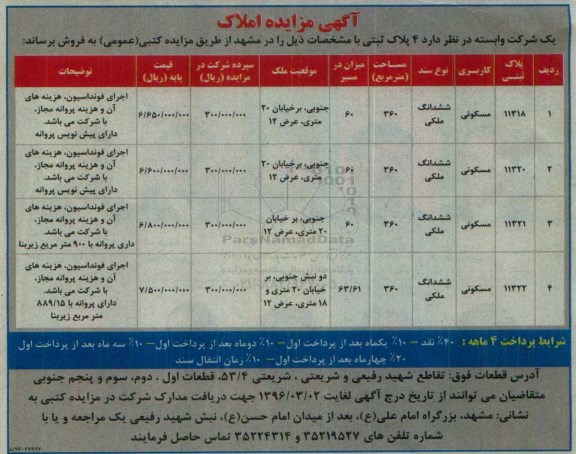 آگهی مزایده املاک
یک شرکت وابسته در نظر دارد ۴ پلاک ثبتی با مشخصات ذیل را در مشهد از طریق مزایده کتبی(عمومی) به فروش برساند:
ردیف پلاک ثبتی کاربری نوع سند مساحت (مترمربع) میزان در مسیر موقعیت ملک سپرده شرکت در مزایده (ریال) قیمت پایه (ریال) توضیحات
۱ ۱۱۳۱۸ مسکونی ششدانگ ملکی ۳۶۰ ۶۰ جنوبی، برخیابان ۲۰ متری، عرض ۱۲ ۳۰۰/۰۰۰/۰۰۰ ۶/۶۵۰/۰۰۰/۰۰۰
اجرای فونداسیون، هزینه های
آن و هزینه پروانه مجاز،
با شرکت می باشد.
دارای پیش نویس پروانه
۲ ۱۱۳۲۰ مسکونی ششدانگ ملکی ۳۶۰ ۶۰ جنوبی، برخیابان ۲۰ متری، عرض ۱۲ ۳۰۰/۰۰۰/۰۰۰ ۶/۶۰۰/۰۰۰/۰۰۰
اجرای فونداسیون، هزینه های
آن و هزینه پروانه مجاز،
با شرکت می باشد.
دارای پیش نویس پروانه
۳ ۱۱۳۲۱ مسکونی ششدانگ ملکی ۳۶۰ ۶۰ جنوبی، بر خیابان ۲۰ متری، عرض ۱۲ ۳۰۰/۰۰۰/۰۰۰ ۶/۸۰۰/۰۰۰/۰۰۰
اجرای فونداسیون، هزینه های
آن و هزینه پروانه مجاز،
با شرکت می باشد.
داری پروانه با ۹۰۰ متر مربع زیربنا
۴ ۱۱۳۲۲ مسکونی ششدانگ ملکی ۳۶۰ ۶۳/۶۱ دو نبش جنوبی، بر خیابان ۲۰ متری و ۱۸ متری، عرض ۱۲ ۳۰۰/۰۰۰/۰۰۰ ۷/۵۰۰/۰۰۰/۰۰۰
اجرای فونداسیون، هزینه های
آن و هزینه پروانه مجاز،
با شرکت می باشد.
دارای پروانه با ۸۸۹/۱۵
متر مربع زیربنا
ParsNamadData
شرایط پرداخت ۴ ماهه : ۴۰٪ نقد – ۱۰٪ یکماه بعد از پرداخت اول– ۱۰٪ دوماه بعد از پرداخت اول– ۱۰٪ سه ماه بعد از پرداخت اول
۲۰٪ چهارماه بعد از پرداخت اول– ۱۰٪ زمان انتقال سند
آدرس قطعات فوق: تقاطع شهید رفیعی و شریعتی ، شریعتی ۵۳/۴، قطعات اول ، دوم، سوم و پنجم جنوبی
متقاضیان می توانند از تاریخ درج آگهی لغایت ۱۳۹۶/۰۳/۰۲ جهت دریافت مدارک شرکت در مزایده کتبی به
نشانی: مشهد، بزرگراه امام علی(ع)، بعد از میدان امام حسن(ع)، نبش شهید رفیعی یک مراجعه و یا با
شماره تلفن های ۳۵۲۱۹۵۲۷ و ۳۵۲۲۴۳۱۴ تماس حاصل فرمایند